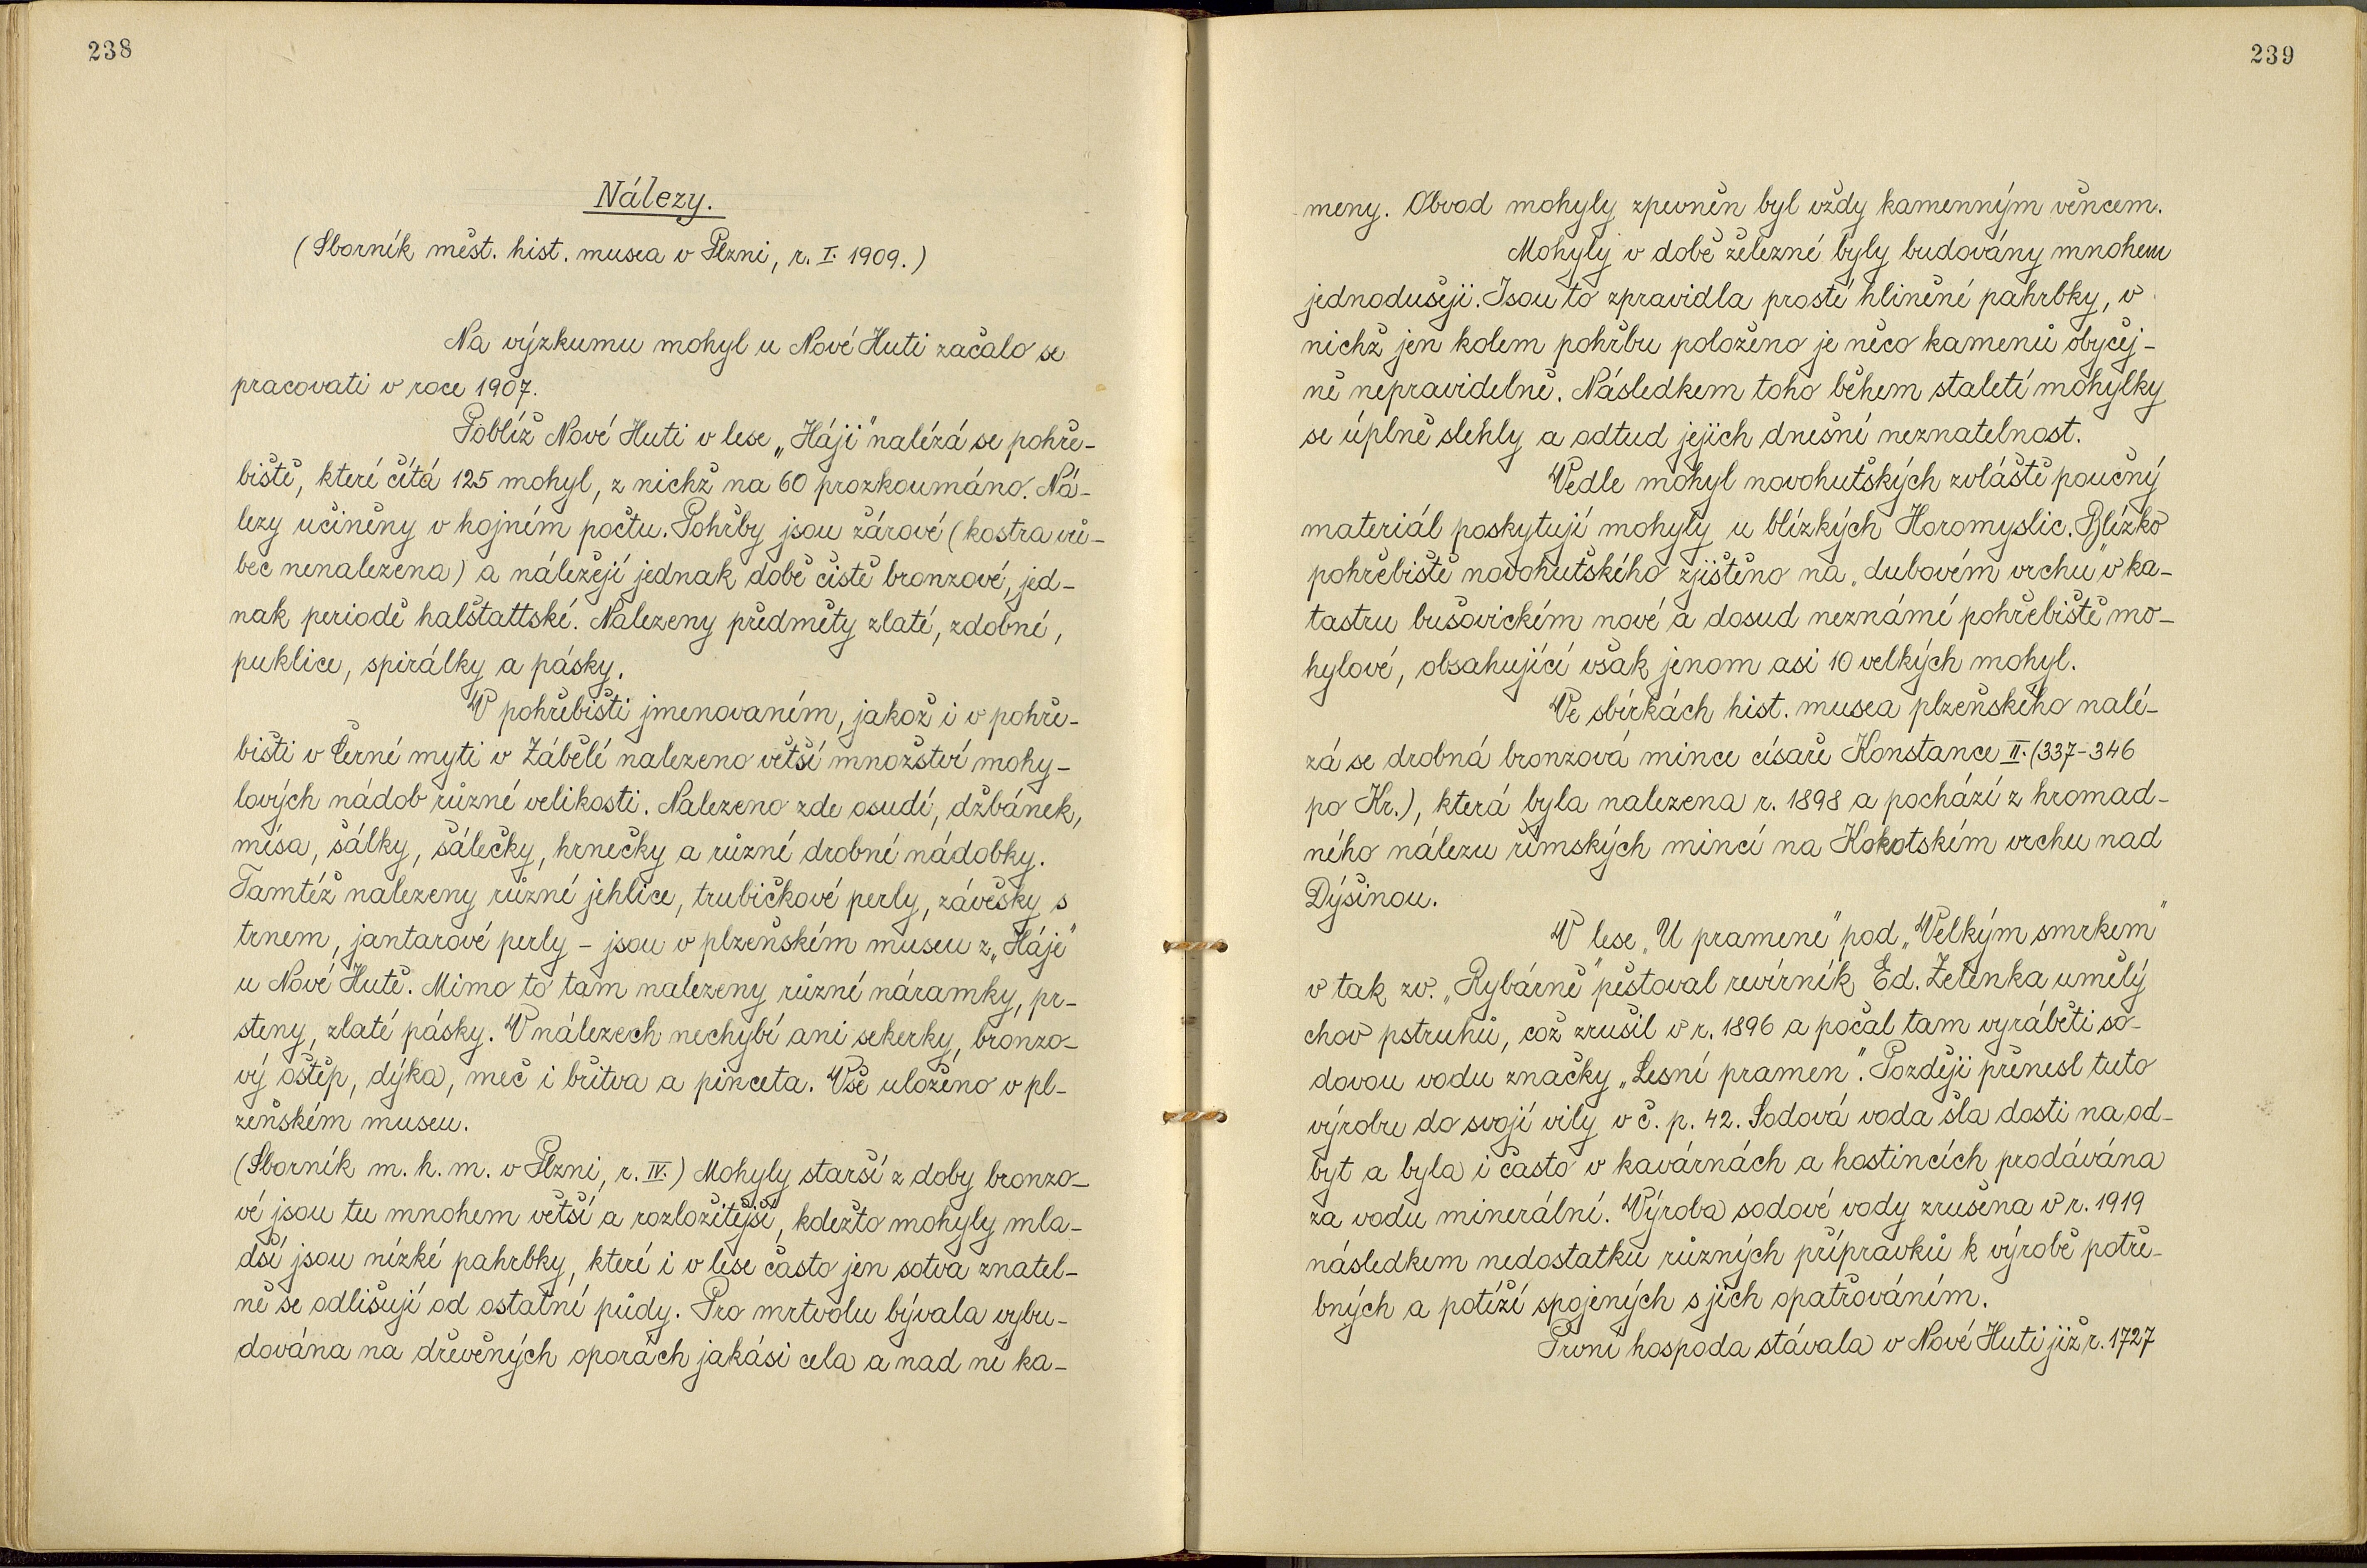 238
Nálezy.
(Sborník měst. hist. musea v Plzni, r. I. 1909.)
Na výzkumu mohyl u Nové Huti začalo se
pracovati v roce 1907.
Poblíž Nové Huti v lese „Háji" nalézá se pohře-
biště, které čítá 125 mohyl, z nichž na 60 prozkoumáno. Ná-
lezy učiněny v hojném počtu. Pohřby jsou žárové (kostra vů-
bec nenalezena) a náležejí jednak době čistě bronzové, jed-
nak periodě halštattské. Nalezeny předměty zlaté, zdobné,
puklice, spirálky a pásky.
V pohřebišti jmenovaném, jakož i v pohře-
bišti v Černé myti v Zábělé nalezeno větší množství mohy-
lových nádob různé velikosti. Nalezeno zde osudí, džbánek,
mísa, šálky, šálečky, hrnečky a různé drobné nádobky.
Tamtéž nalezeny různé jehlice, trubičkové perly, závěsky s
trnem, jantarové perly – jsou v plzeňském museu z „Háje"
u Nové Hutě. Mimo to tam nalezeny různé náramky, pr-
steny, zlaté pásky. V nálezech nechybí ani sekerky, bronzo-
vý oštěp, dýka, meč i břitva a pinceta. Vše uloženo v pl-
zeňském museu.
(Sborník m. h. m. v Plzni, r. IV.) Mohyly starší z doby bronzo-
vé jsou tu mnohem větší a rozložitější, kdežto mohyly mla-
dší jsou nízké pahrbky, které i v lese často jen sotva znatel-
ně se odlišují od ostatní půdy. Pro mrtvolu bývala vybu-
dována na dřevěných oporách jakási cela a nad ní ka-
239
meny. Obvod mohyly zpevněn byl vždy kamenným věncem.
Mohyly v době železné byly budovány mnohem
jednodušeji. Jsou to zpravidla prosté hliněné pahrbky, v
nichž jen kolem pohřbu položeno je něco kamenů obyčej-
ně nepravidelně. Následkem toho během staletí mohylky
se úplně slehly a odtud jejich dnešní neznatelnost.
Vedle mohyl novohutských zvláště poučný
materiál poskytují mohyly u blízkých Horomyslic. Blízko
pohřebiště novohutského zjištěno na „dubovém vrchu" v ka-
tastru bušovickém nové a dosud neznámé pohřebiště mo-
hylové, obsahující však jenom asi 10 velkých mohyl.
Ve sbírkách hist. musea plzeňského nalé-
zá se drobná bronzová mince císaře Konstance II. (337-346
po Kr.), která byla nalezena r. 1898 a pochází z hromad-
ného nálezu římských mincí na Kokotském vrchu nad
Dýšinou.
V lese „U pramene" pod „Velkým smrkem"
v tak zv. „Rybárně" pěstoval revírník Ed. Zelenka umělý
chov pstruhů, což zrušil v r. 1896 a počal tam vyráběti so-
dovou vodu značky „Lesní pramen". Později přenesl tuto
výrobu do svojí vily v č. p. 42. Sodová voda šla dosti na od-
byt a byla i často v kavárnách a hostincích prodávána
za vodu minerální. Výroba sodové vody zrušena v r. 1919
následkem nedostatku různých přípravků k výrobě potře-
bných a potíží spojených s jich opatřováním.
První hospoda stávala v Nové Huti již r. 1727